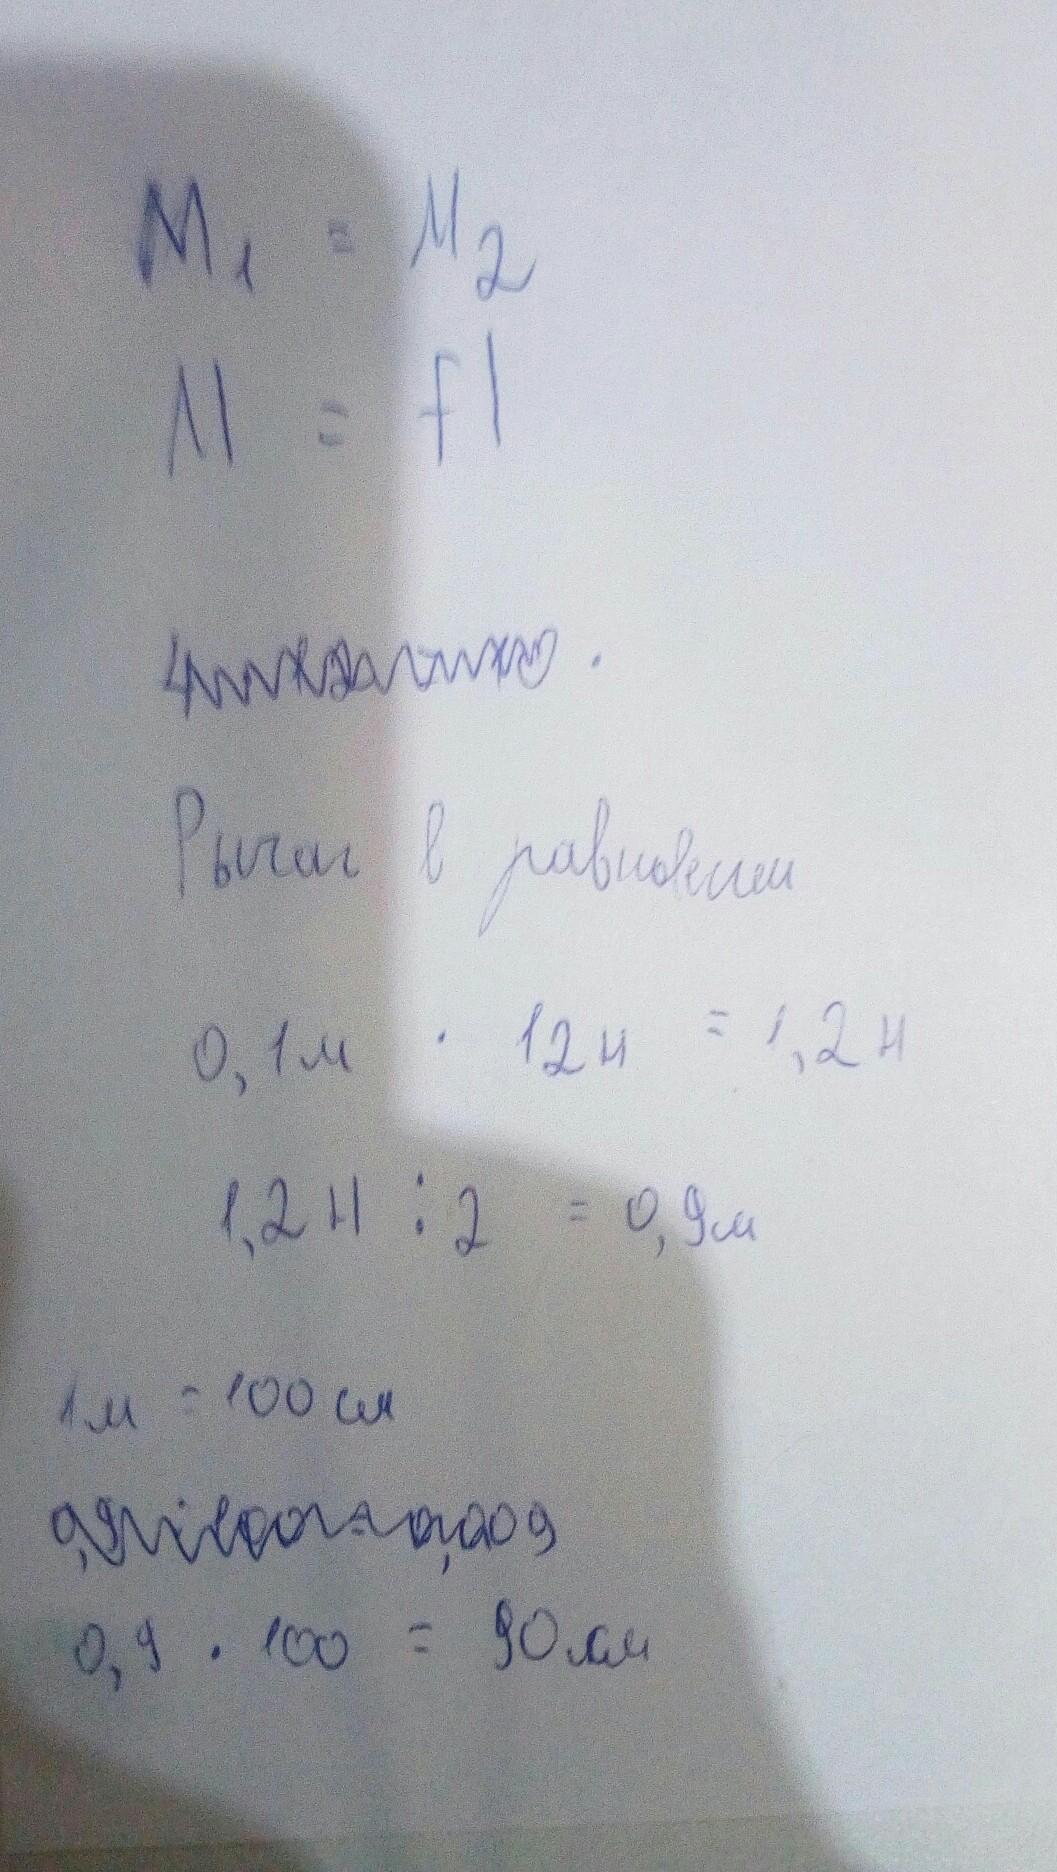 M₁ = M₂
M = Fl
Рычаг в равновесии
0,1м · 12Н = 1,2Н
1,2Н : 2 = 0,9м
1м = 100 см
0,9 · 100 = 90 см